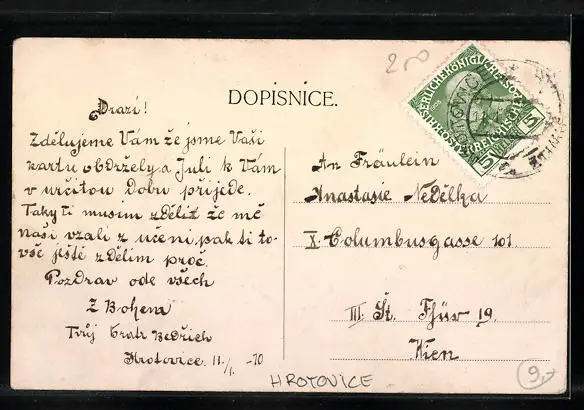 200
DOPISNICE.
Drazí!
Zdělujeme Vám že jsme Vaši
kartu obdržely a Juli k Vám
v určitou dobu přijede.
Taky ti musim zdělit že mě
naši vzali z učeni, pak ti to-
vše ještě zdělim proč.
Pozdrav ode všech
Z Bohem
Tvůj bratr Bedřich
Hrotovice. 11./1. -10
An Fräulein
Anastasie Nedělka
X. Columbusgasse 101
III. St. Thür 19.
Wien
5
5
HROTOVICE
9,-